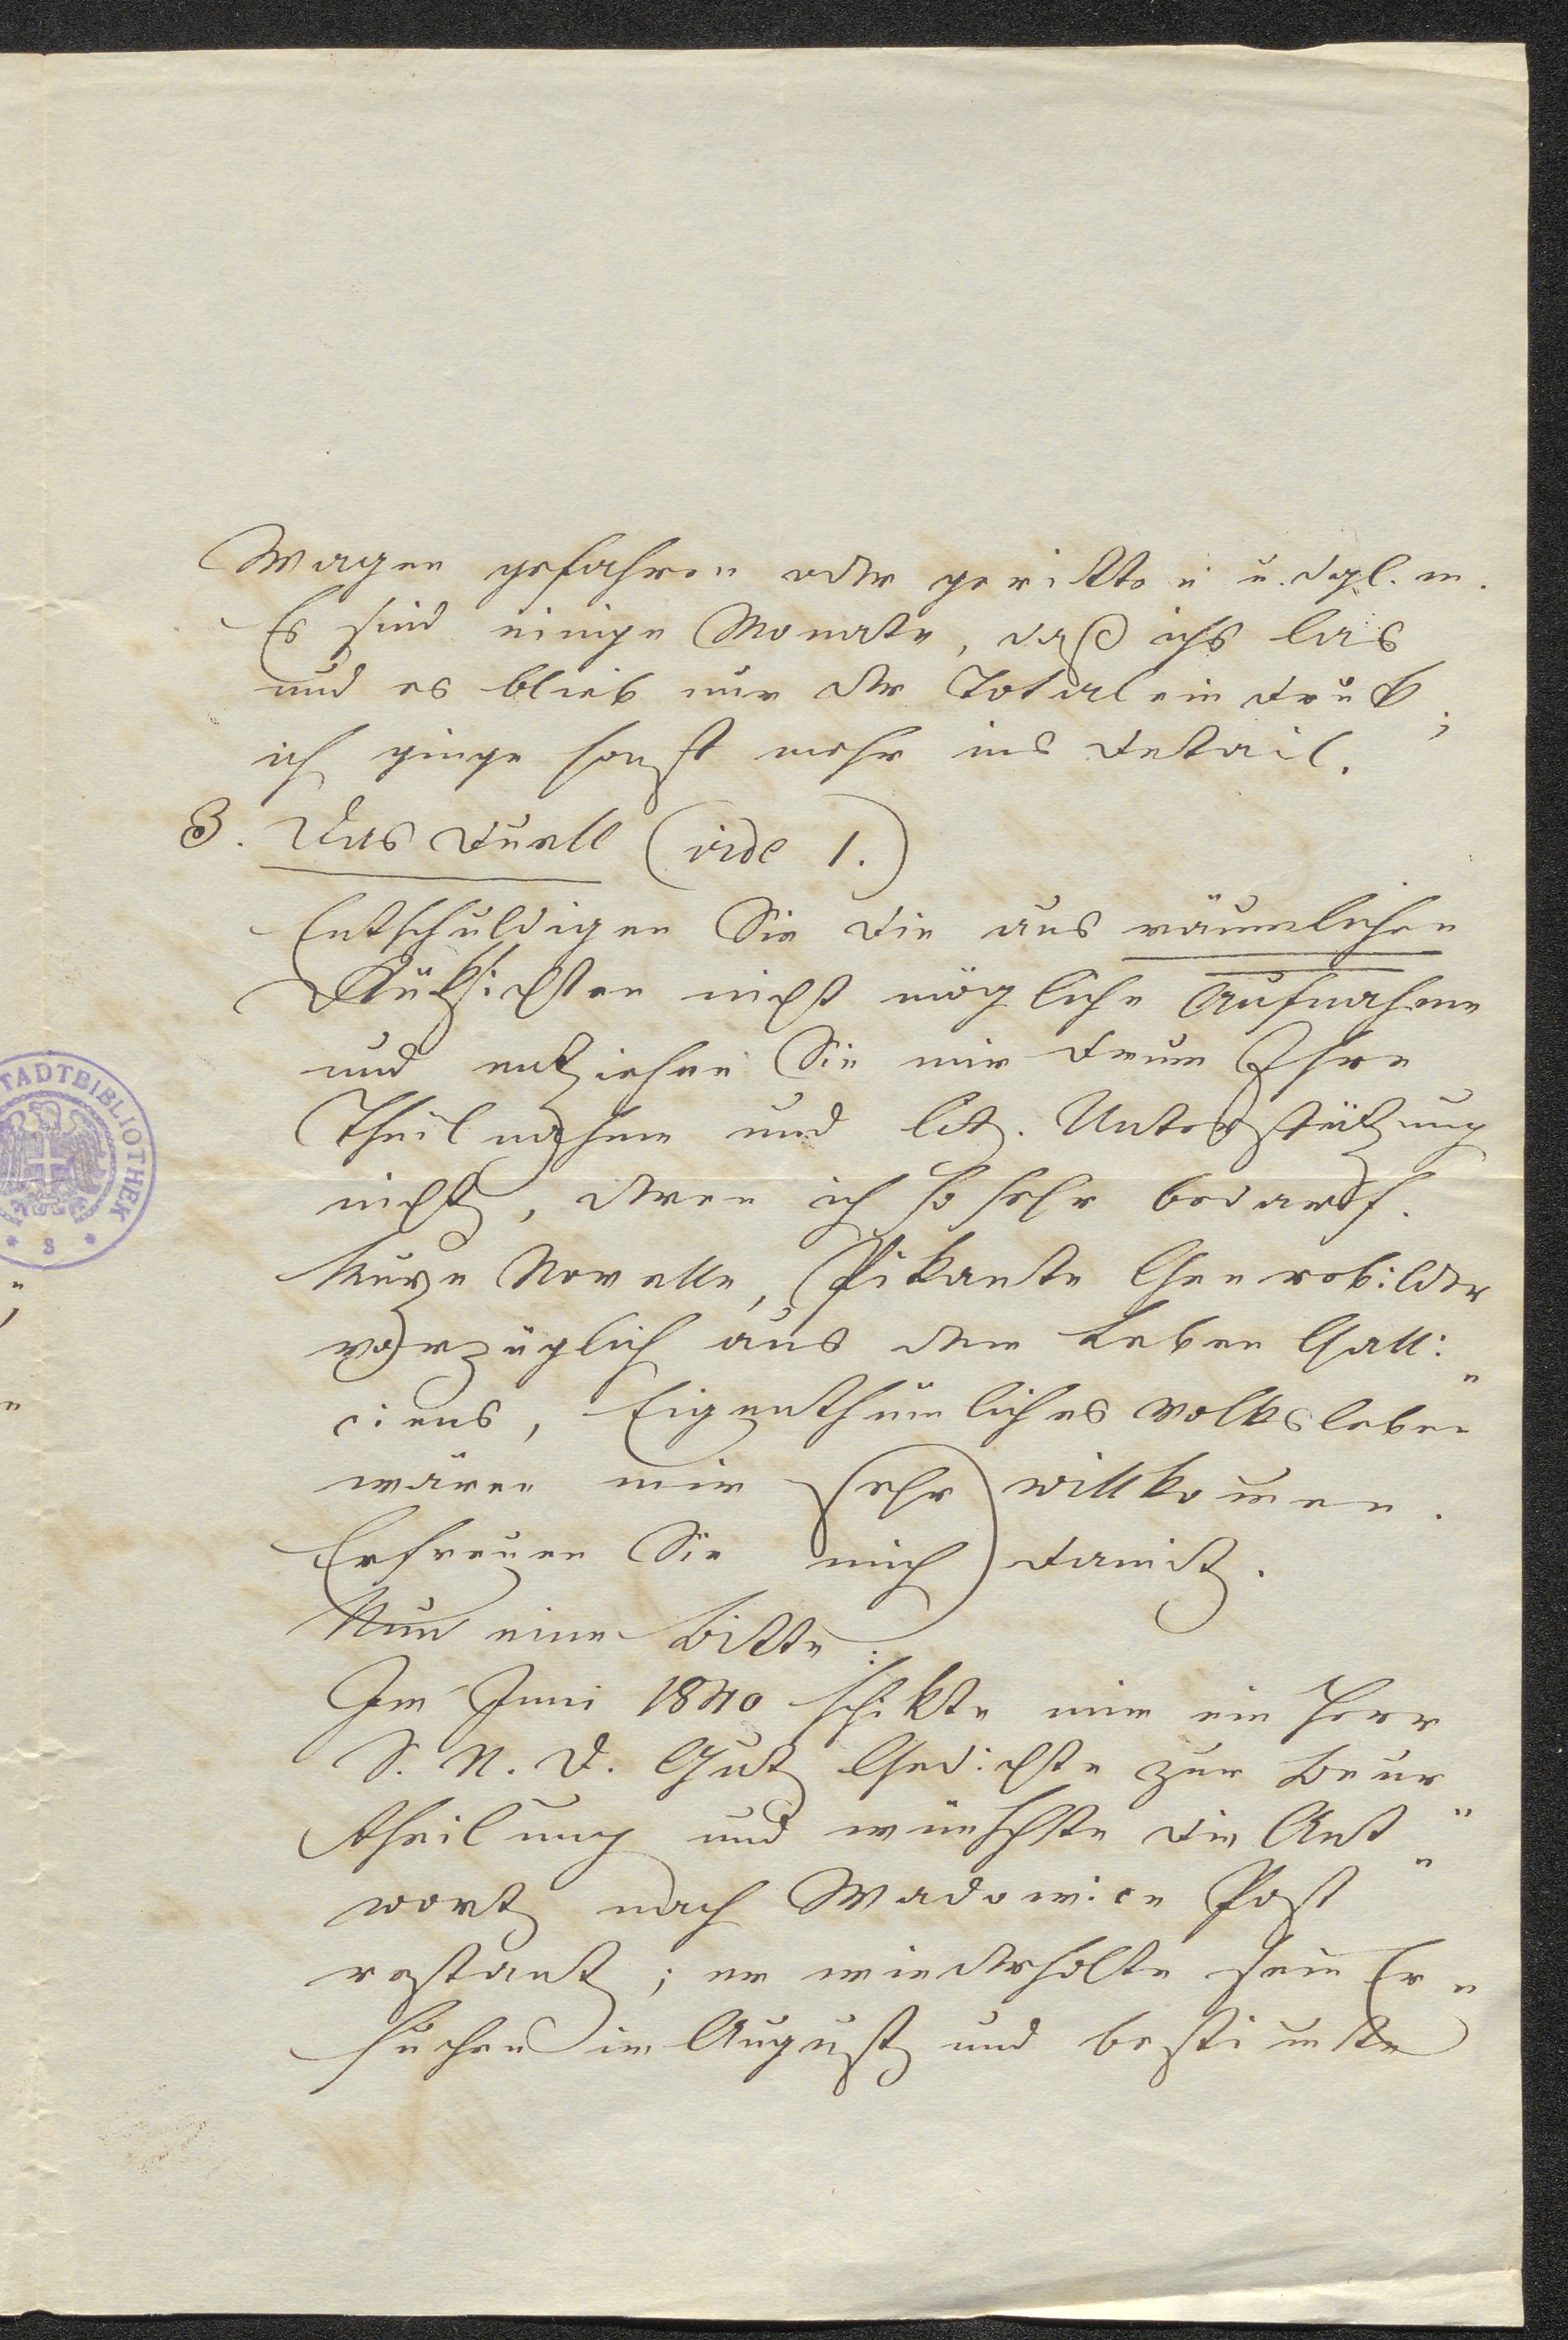 Wagen gefahren oder geritten u. dgl. m.
Es sind einige Monate, daß ichs las
und es blieb nur der Totaleindruk;
ich ginge sonst mehr ins Detail.
3. Das Duell (vide 1.)
Entschuldigen Sie die aus räumlichen
Rüksichten nicht mögliche Aufnahme
und entziehen Sie mir drum Ihre
Theilnahme und lit. Unterstützung
nicht, deren ich so sehr bedarf.
Kurze Novelle, Pikante Genrebilder
vorzüglich aus dem Leben Galli„
ciens, Eigenthümliches Volksleben
wären mir sehr willkommen.
Erfreuen Sie mich damit.
Nun eine Bitte:
Im Juni 1840 schikte mir ein Herr
S. N. D. Gut Gedichte zur Beur„
theilung und wünschte die Ant„
wort nach Wadowice Post
restant; er wiederholte sein Er„
suchen im August und bestimmte
STADTBIBLIOTHEK
* S *